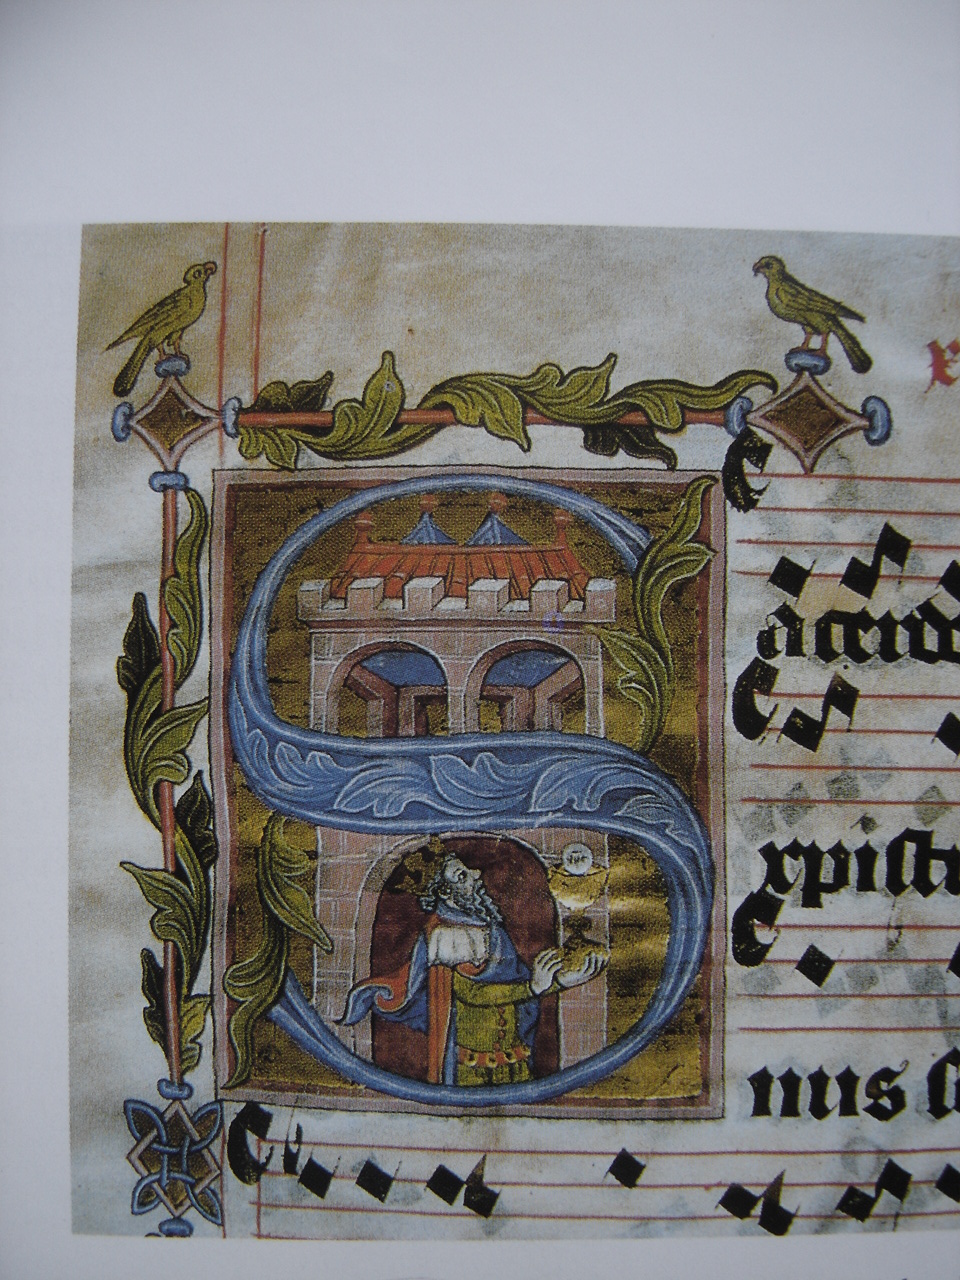 Sacerd
xpist
nus